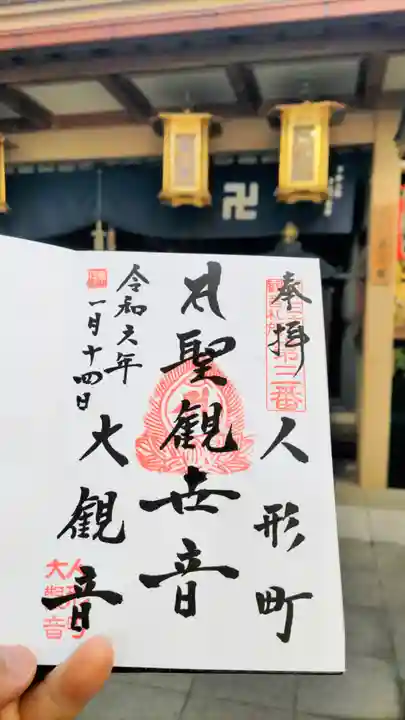 奉拝
人形町
聖観世音
大観音
令和六年
一月十四日
第三番
人形町
大観音
卍